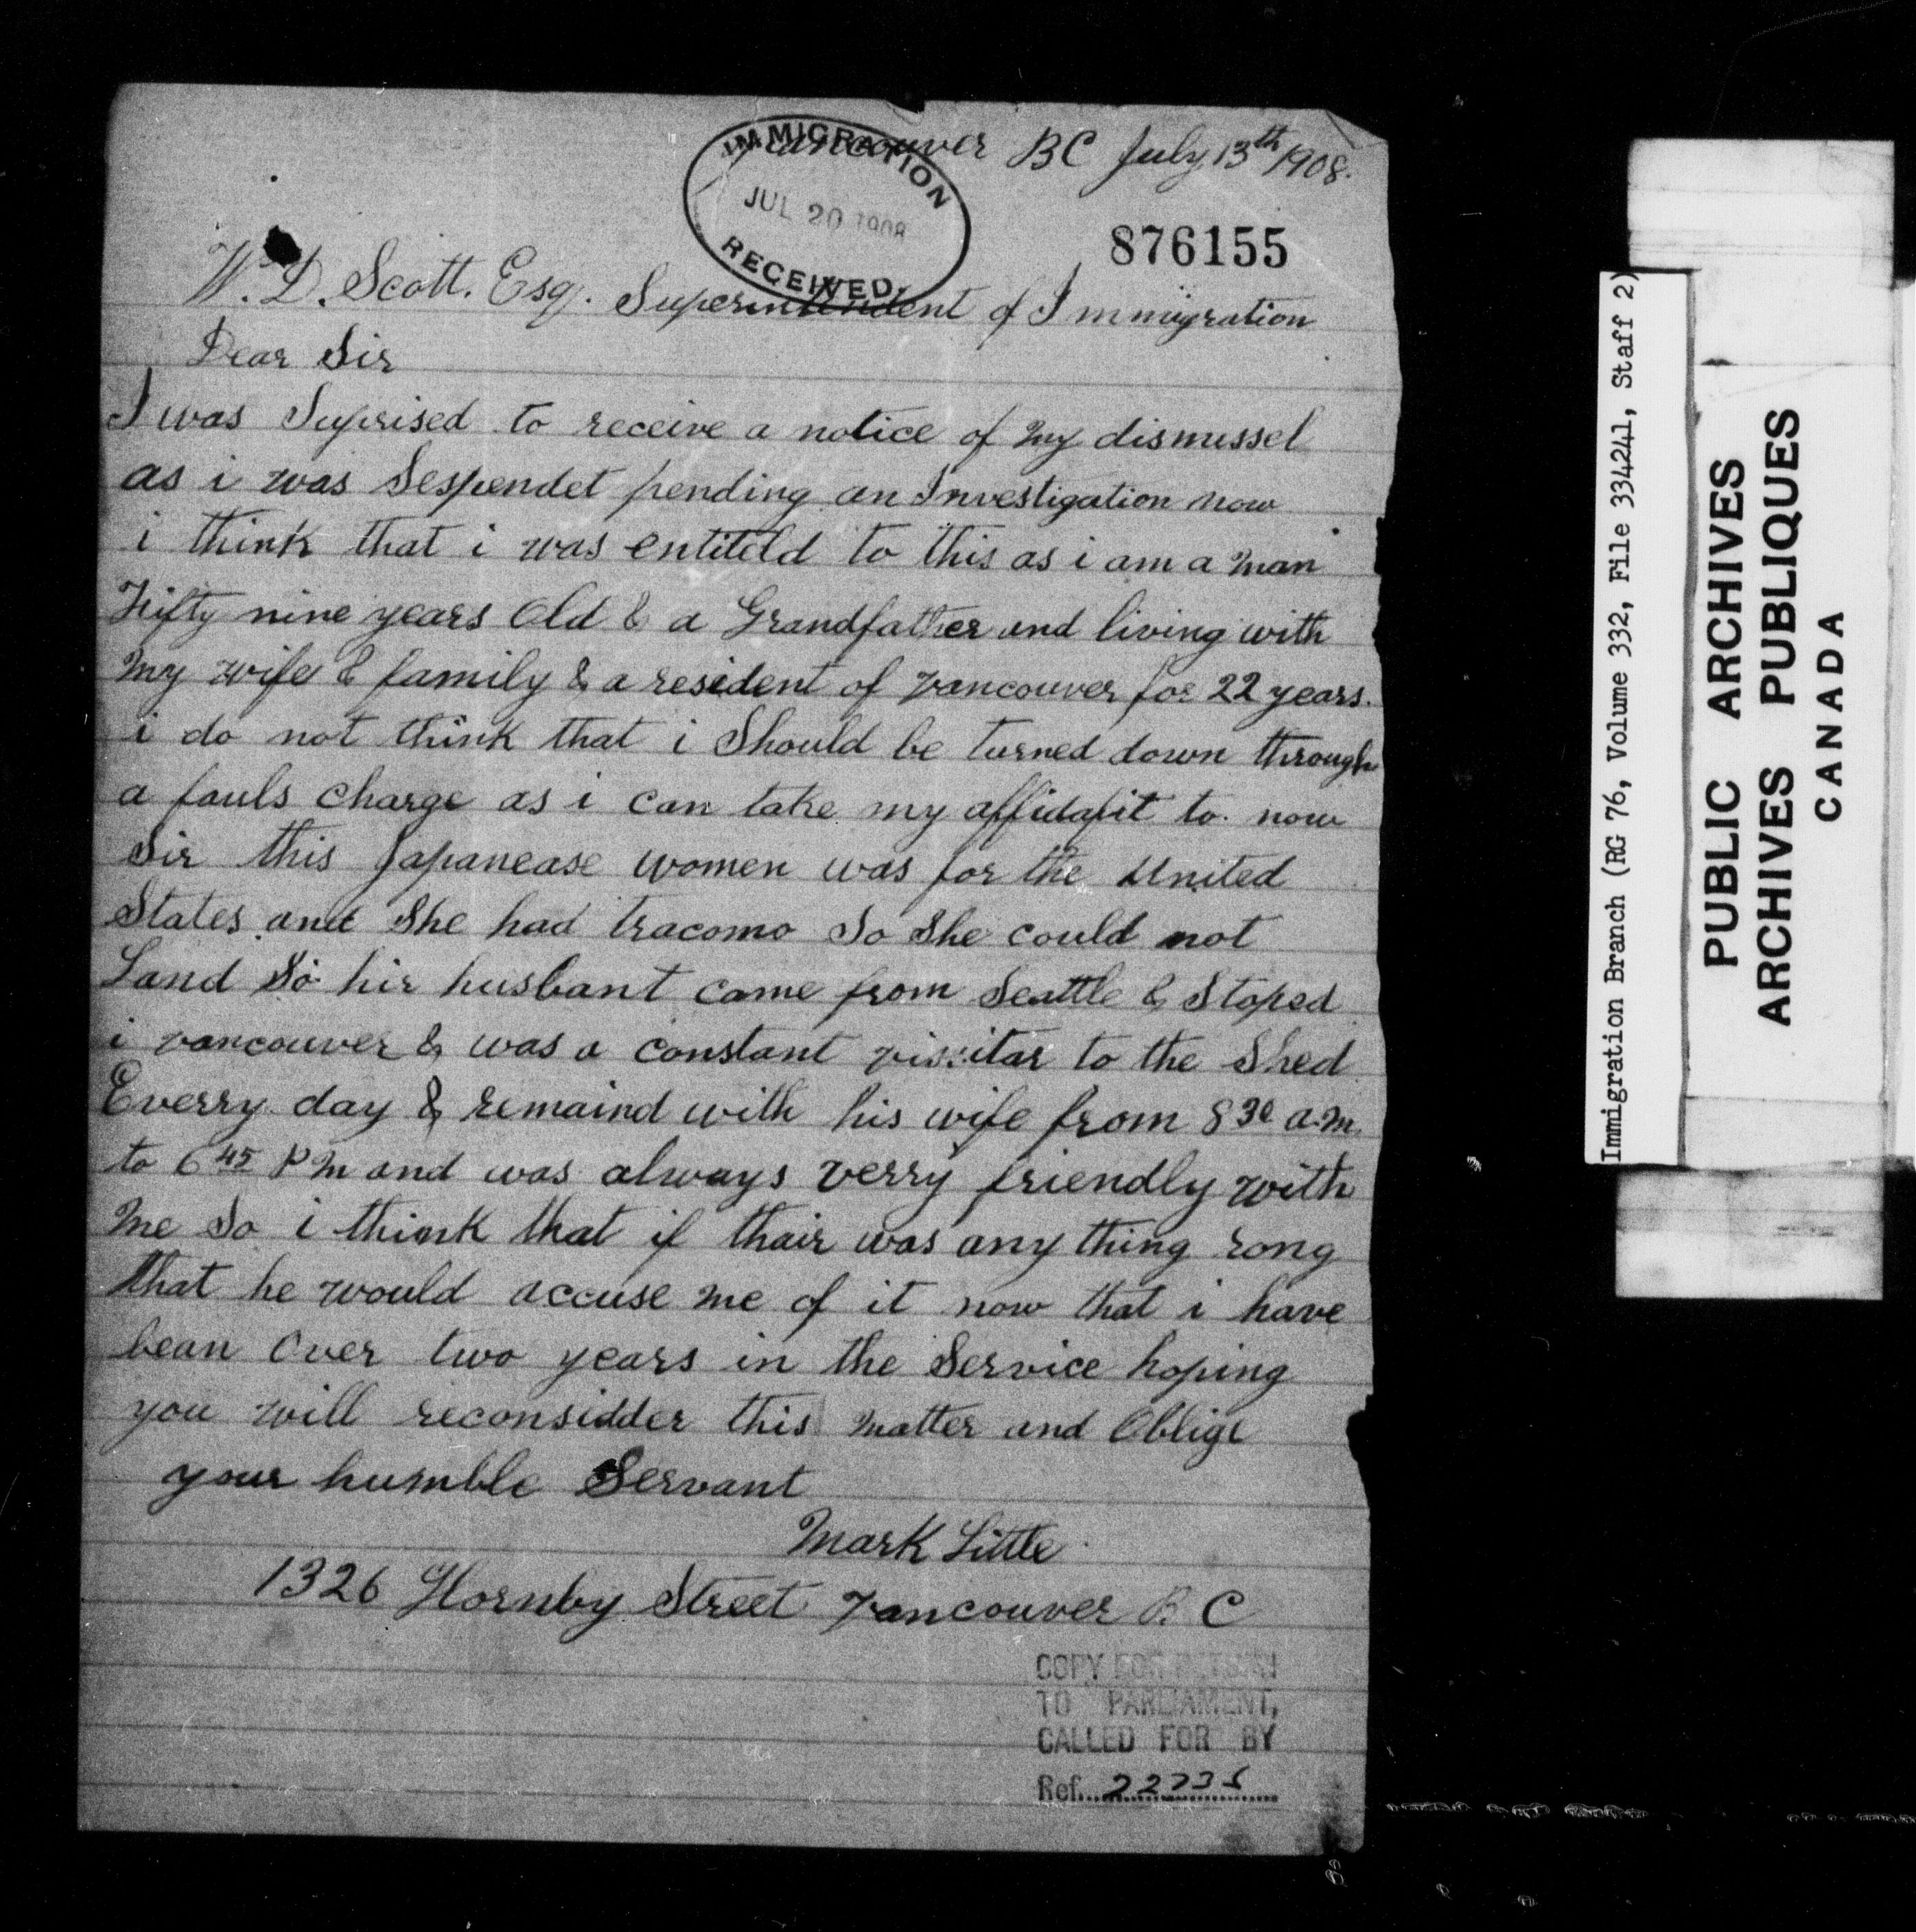 Vancouver BC July 13th 1908.
IMMIGRATION
JUL 20 1908
RECEIVED
876155
W. D. Scott. Esq. Superintendent of Immigration
Dear Sir
I was Suprised to receive a notice of my dismussel
as i was Sespendet pending an Investigation now
i think that i was entiteld to this as i am a man
Fifty nine years Old & a Grandfather and living with
my wife & family & a resident of Vancouver for 22 years.
i do not think that i Should be turned down through
a fauls charge as i can take my affidafit to. now
Sir this Japanease women was for the United
States and She had tracomo So She could not
Land So hir husbant came from Seattle & Stoped
i Vancouver & was a constant vissitar to the Shed
Everry day & remaind with his wife from 8 30 a.m.
to 6 45 P m and was always verry friendly with
me So i think that if thair was any thing rong
that he would accuse me of it now that i have
bean Over two years in the Service hoping
you will reconsidder this matter and Oblige
your humble Servant
Mark Little
1326 Hornby Street Vancouver B C
COPY FOR RETURN
TO PARLIAMENT,
CALLED FOR BY
Ref.
Immigration Branch (RG 76, Volume 332, File 334241, Staff 2)
PUBLIC ARCHIVES
ARCHIVES PUBLIQUES
CANADA